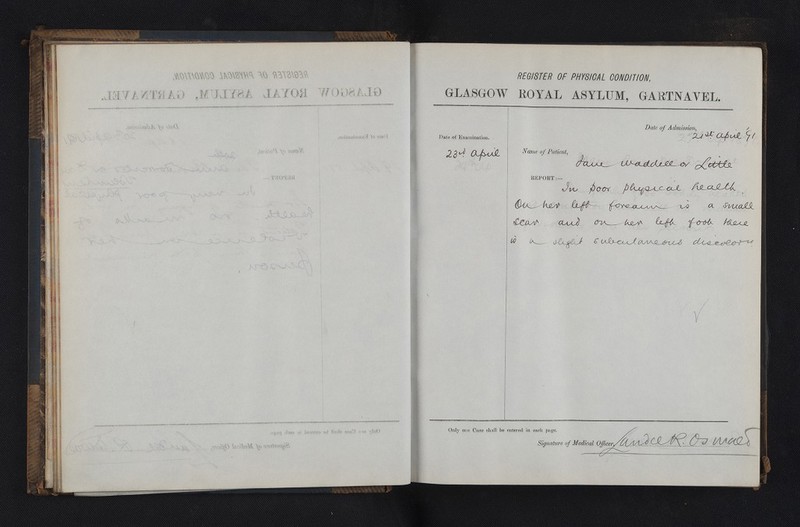 REGISTER OF PHYSICAL CONDITION.
GLASGOW ROYAL ASYLUM, GARTNAVEL.
Date of Admission,
21st April 91
Date of Examination.
23rd April
Name of Patient,
Jane Waddell or Little
REPORT:—
In poor physical health.
On her left forearm is a small
scar and on her left foot there
is a slight subcutaneous
Only one Case shall be entered in each page.
Signature of Medical Officer, R. Oswald